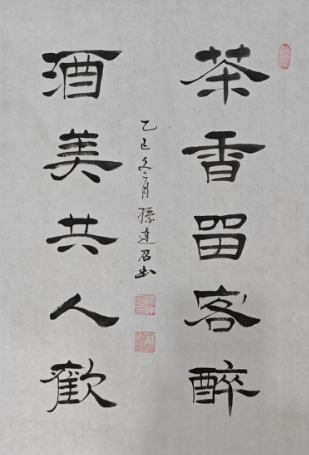 茶香留客醉
酒美共人歡
乙巳冬月孫建召书